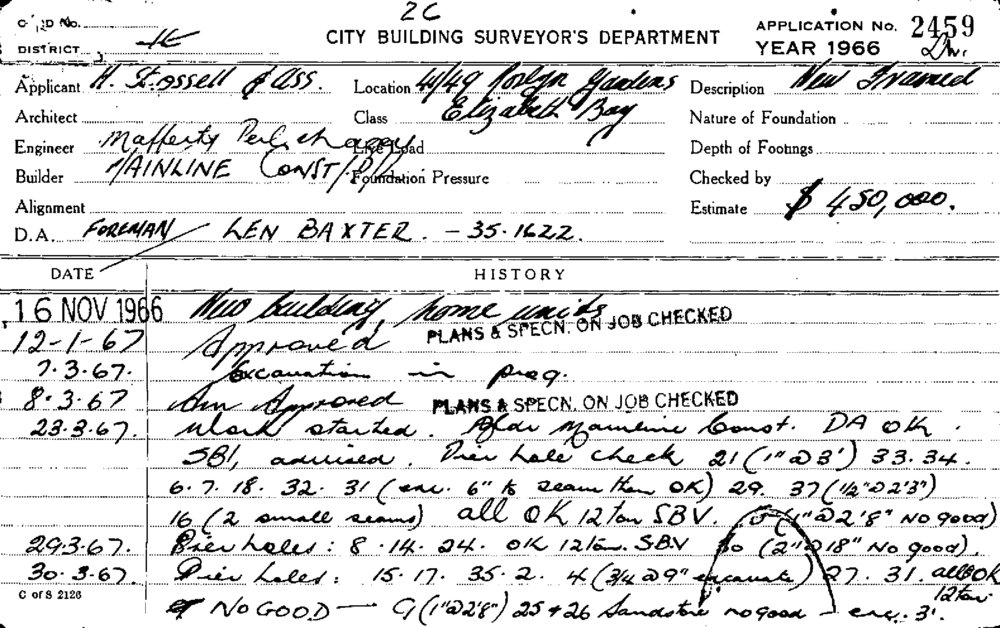 2C
CARD No.
DISTRICT
CITY BUILDING SURVEYOR'S DEPARTMENT
APPLICATION No. 2459
YEAR 1966
Applicant H. Stossell & Ass. Location 41/49 Roslyn Gardens Description New Framed
Architect Class Elizabeth Bay Nature of Foundation
Engineer Mafferty Live Load Depth of Footings
Builder MAINLINE CONST/P/L Foundation Pressure Checked by
Alignment Estimate $ 450,000.
D.A. FOREMAN LEN BAXTER. - 35.1622.
DATE HISTORY
16 NOV 1966 New building, home units
12-1-67 Approved PLANS & SPECN. ON JOB CHECKED
7.3.67. Excavation in prog.
8.3.67 Am Approved PLANS & SPECN. ON JOB CHECKED
23.3.67. Work started. Mainline Const. DA OK.
SBI, advised. Pier hole check 21 (1"@3') 33.34.
6.7.18.32.31 (exc. 6" to seam then OK) 29. 37 (1/2"@2'3")
16 (2 small seams) all OK 12 ton SBV. (1"@2'8" No good)
29.3.67. Pier holes: 8.14.24. OK 12 ton. SBV 30 (2"@18" No good).
30.3.67. Pier holes: 15.17.35.2. 4 (3/4@9" excavate) 27.31. all OK
12 ton
C of S 2126
NO GOOD — 9 (1"@2'8") 25 + 26 Sandstone no good - exc. 3'